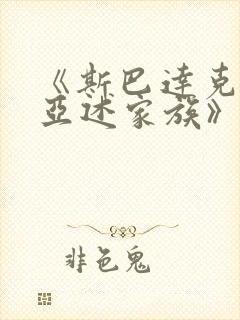 《斯巴达克
亚述家族》
非色鬼